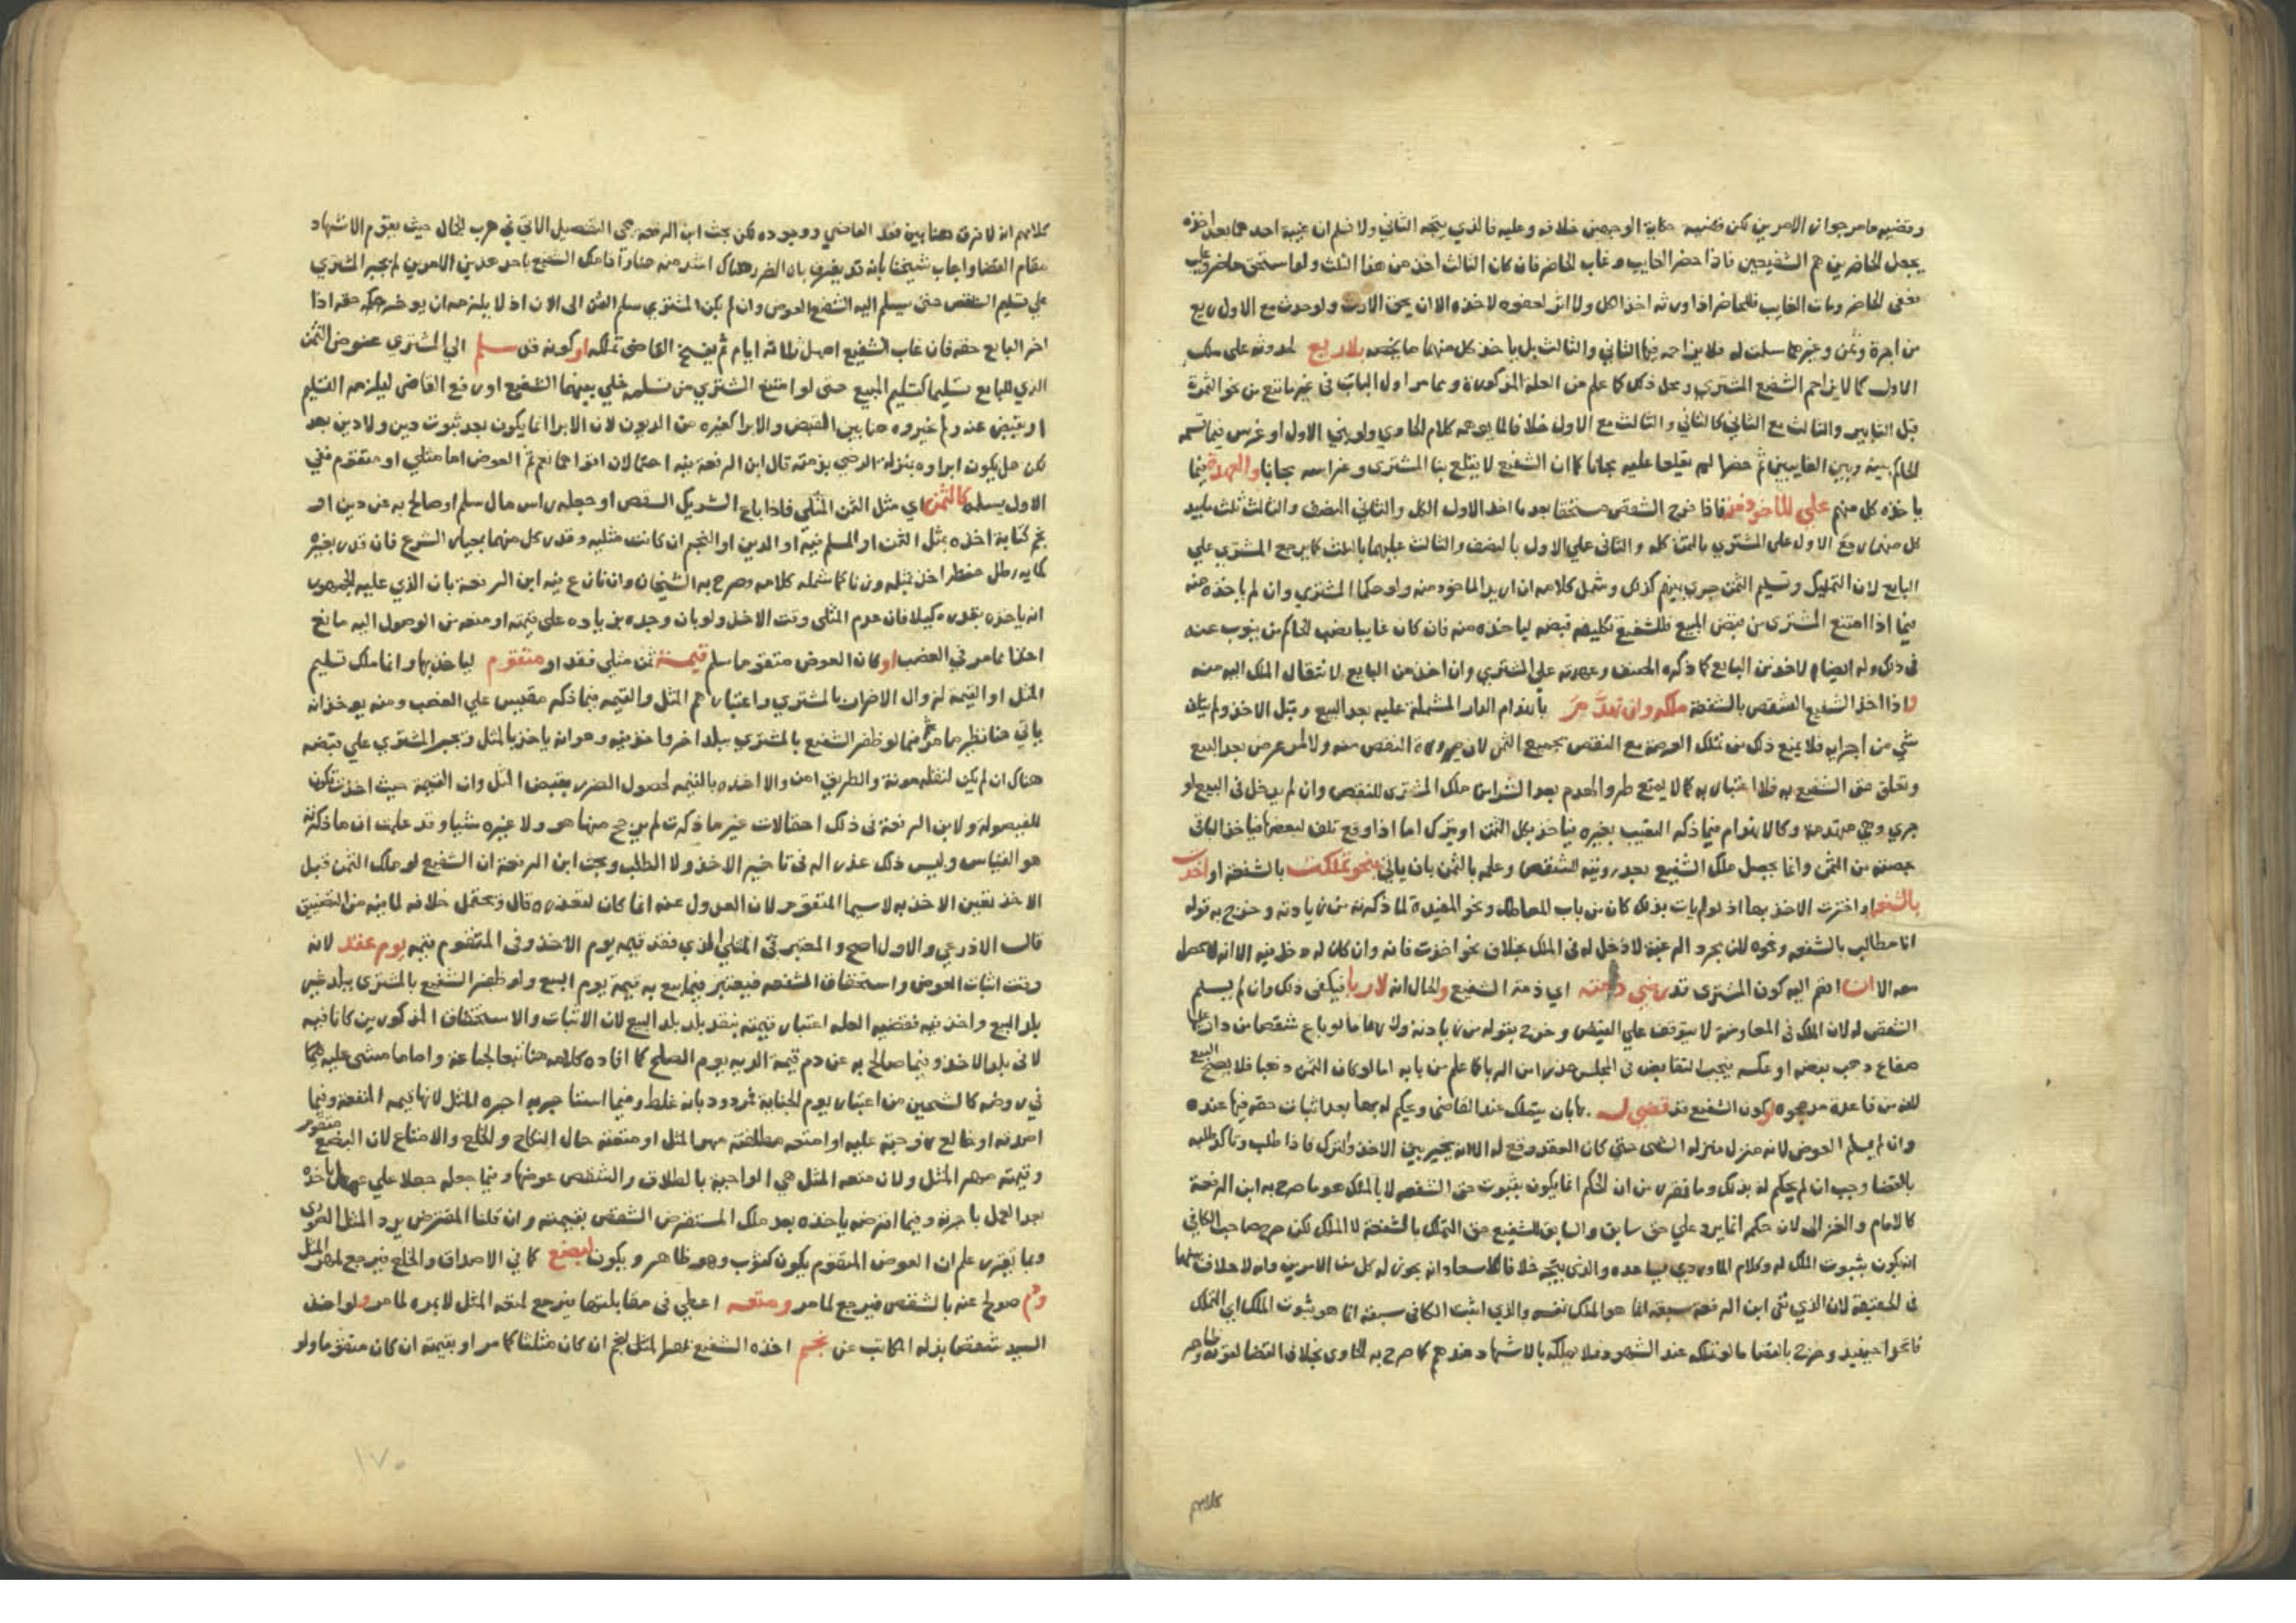 وقضيه ما مر جواز الامرين لكن قضيه حكاية الوجهين خلافه وعليه فالذي يتجه الثاني ولا فيلم ان غيبة احدهما بعد اخذه
يجعل الحاضرين هم الشفيعين فاذا حضر الغايب وغاب الحاضر فان كان الثالث اخذ من هذا الثلث ولو استحق حاضر وغايب
فعفى الحاضر ومات الغايب فللحاضر اذا ورثه اخذ الكل ولا اثر لعفوه لاخذه الان بحق الارث ولو حدث مع الاول ريع
من اجرة وثمن وغيرهما سلمت له فلا يزاحمه فيها الثاني والثالث بل ياخذ كل منهما ما يخصه بلا ريع لحدوثه على ملك
الاول كما لا يزاحم الشفيع المشتري ومحل ذلك كما علم من العلة المذكورة ومما مر اول الباب في غير ما تبع من نحو الثمرة
قبل التابير والثالث مع الثاني كالثاني والثالث مع الاول خلافا لما يوهمه كلام الحاوي ولو بني الاول او غرس فيما قسمه
الحاكم بينه وبين الغايبين ثم حضرا لم يقلعا عليه مجانا كما ان الشفيع لا يقلع بنا المشتري وغراسه مجانا والعهدة فيما
ياخذه كل منهم على الماخوذ منه فاذا خرج الشقص مستحقا بعد ما اخذ الاول الكل والثاني النصف والثالث ثلث ما بيد
كل منهما رجع الاول على المشتري بالثمن كله والثاني على الاول بالنصف والثالث عليهما بالثلث كما يرجع المشتري على
البايع لان التمليك وتسليم الثمن جرى بينهم كذلك وشمل كلامه ان اريد الماخوذ منه ولو حكما المشتري وان لم ياخذه منه
فيما اذا امتنع المشتري من قبض المبيع فللشفيع تكليفه قبضه لياخذه منه فان كان غايبا نصب الحاكم من ينوب عنه
في ذلك وله ايضا الاخذ من البايع كما ذكره المصنف وعهدته على المشتري وان اخذ من البايع لانتقال الملك اليه منه
واذا اخذ الشفيع الشقص بالشفعة ملكه وان تهدم بانهدام الدار المشتملة عليه بعد البيع وقبل الاخذ ولم يتلف
شي من اجزايه فلا يمنع ذلك من تملك العرصة مع النقص بجميع الثمن لان صيرورة النقص منه ولا لمن عرض بعد البيع
وتعلق حق الشفيع به فلا اعتبار به كما لا يمنع طرو الهدم بعد الشرا من ملك المشتري للنقص وان لم يدخل في البيع لو
جرى وهي منهدمة وكالانهدام فيما ذكر التعيب بغيره فياخذ بكل الثمن او يترك اما اذا وقع تلف لبعضها فياخذ الباقي
بحصته من الثمن وانما يحصل ملك الشفيع بعد رويته الشقص وعلمه بالثمن بان ياتي بنحو تملكت بالشفعة او اخذت
بالشفعة او اخترت الاخذ بها اذ لو لم يات بذلك كان من باب المعاطاة ونحو المفيدة لما ذكرته من زيادته وخرج به قوله
انا مطالب بالشفعه ونحوه لان مجرد الرغبة لا دخل له في الملك بخلاف نحو اخذت فانه وان كان له دخل فيه الا انه لا يحصل
معه الا ان انضم اليه كون المشتري قد رضي ذمته اي ذمة الشفيع والحال انه لا ربا فيكفي ذلك وان لم يسلم
الشقص له لان الملك في المعاوضة لا يتوقف على القبض وخرج بقوله من زيادته ولا ربا ما لو باع شقصا من دار عليها
صفايح ذهب بفضه او عكسه فيجب التقابض في المجلس حذرا من الربا كما علم من بابه اما لو كان الثمن ذهبا فلا يصح البيع
لانه من قاعدة مد عجوه او كون الشفيع قد قضي له بها بان يتملك عند القاضي ويحكم له بها بعد اثبات حقه فيها عنده
وان لم يسلم العوض لانه منزل منزله الشرى حتى كان العقد وقع له الا انه يخير بين الاخذ والترك فاذا طلب وتاكد طلبه
بالقضا وجب ان يحكم له بذلك وما تقرر من ان الحكم انما يكون بثبوت حق الشفعه لا بالملك هو ما صرح به ابن الرفعة
كالامام والغزالي لان حكمه انما يرد على حق سابق والسابق للشفيع حق التملك بالشفعة لا الملك لكن صرح صاحب الكافي
انه يكون بثبوت الملك له وكلام الماوردي يساعده والذي يتجه خلافا لما سعاد انه يجوز له كل من الامرين وانه لا خلاف بينهما
في الحقيقة لان الذي نفى ابن الرفعه سبقه انما هو الملك نفسه والذي اثبت الكافي سبقه انما هو ثبوت الملك اي التملك
فاتحدا حينيذ وخرج بالقضا ما لو تملكه عند الشهود فلا يملكه بالاشهاد عندهم كما صرح به الحاوي بخلاف القضا لقوته وظاهر
كلامهم
كلامهم انه لا فرق هنا بين فقد القاضي ووجوده لكن بحث ابن الرفعة مجى التفصيل الاتي في هرب الجمال حيث يقوم الاشهاد
مقام القضا واجاب شيخنا بانه قد يفرق بان الضرر هناك اشد منه هنا واذا ملك الشفيع باحد هذين الامرين لم يجبر المشتري
على تسليم الشقص حتى يسلم اليه الشفيع العوض وان لم يكن المشتري سلم الثمن الى الان اذ لا يلزمه ان يوخر حقه اذا
اخر البايع حقه فان غاب الشفيع امهل ثلاثة ايام ثم يفسخ القاضي تملكه او كونه قد سلم الى المشتري عوض الثمن
الذي للبايع تسليما كتسليم المبيع حتى لو امتنع المشتري من تسلمه خلى بينهما الشفيع او رفع القاضي ليلزمه التسليم
او يقبض عنه ولم يخيروه هنا بين القبض والابرا كغيره من الديون لان الابرا انما يكون بعد ثبوت دين ولا دين بعد
لكن هل يكون ابراوه بمنزلة الرضى بذمته قال ابن الرفعة فيه احتمالان اقواهما نعم ثم العوض اما مثلي او متقوم ففي
الاول يسلمه كالثمن اي مثل الثمن المثلى فاذا باع الشريك الشقص او جعله راس مال سلم او صالح به عن دين او
نجم كتابة اخذه بمثل الثمن او المسلم فيه او الدين او النجم ان كانت مثليه وقدر كل منها بمعيار الشرع فان قدر بغيره
كمايه رطل حنطه اخذ بمثله وزنا كما شمله كلامه وصرح به الشيخان وان نازع فيه ابن الرفعة بان الذي عليه الجمهور
انه ياخذه بقدره كيلا فان عدم المثلى وقت الاخذ ولو بان وجده بزياده على قيمته او منعه من الوصول اليه مانع
اخذ بما مر في الغصب او كان العوض متقوما سلم قيمة ثمن مثلي فقد او متقوم لياخذ بها وانما ملك تسليم
المثل او القيمة لزوال الاضرار بالمشتري واعتبارهم المثل والقيمه فيما ذكر مقيس على الغصب ومنه يوخذ انه
ياتي هنا نظير ما مر ثم فيما لو ظفر الشفيع بالمشتري ببلد اخر واخذ فيه وهو انه ياخذ بالمثل ويجبر المشتري على قبضه
هناك ان لم يكن لنقله مونة والطريق امن والا اخذه بالقيمه لحصول الضرر بقبض المثل وان القيمة حيث اخذت تكون
للفيصوله ولابن الرفعة في ذلك احتمالات غير ما ذكرت لم يرجح منها هو ولا غيره شيا وقد علمت ان ما ذكرته
هو القياس وليس ذلك عذرا له في تاخير الاخذ ولا الطلب وبحث ابن الرفعة ان الشفيع لو ملك الثمن قبل
الاخذ تعين الاخذ به لا سيما المتقوم لان العدول عنه انما كان لتعذره قال ويحتمل خلافه لما فيه من التضييق
قال الاذرعي والاول اصح والمعتبر في المثلي الذي فقد قيمه يوم الاخذ وفي المتقوم قيمه يوم عقد لانه
وقت اثبات العوض واستحقاق الشفعه فيعتبر فيما بيع به قيمة يوم البيع ولو ظفر الشفيع بالمشتري ببلد غير
بلد البيع واخذ فيه فقضيه العله اعتبار قيمته بنقد بلد البيع لان الاثبات والاستحقاق المذكورين كانا فيه
لا في بلد الاخذ وفيما صالح به عن دم قيمة الديه يوم الصلح كما افاده كلامه هنا تبعا لجماعة واما ما مشى عليه هنا
في روضه كالشيخين من اعتبار يوم الجناية فمردود بانه غلط وفيما استاجر به اجره المثل لانها قيمه المنفعة وفيما
اصدقه او خالع زوجته عليه او امتعه مطلقته مهر المثل او متعته حال النكاح والخلع والامتاع لان البضع متقوم
وقيمته مهر المثل ولان متعه المثل هي الواجبة بالطلاق والشقص عوضها وفيما جعله جعلا على عمل ياخذه
بعد العمل باجرته وفيما اقترضه ياخذه بعد ملك المستقرض الشقص بقيمته وان قلنا المقترض يرد المثل الصوري
ومما تقرر علم ان العوض المتقوم يكون كثوب وهو ظاهر ويكون لبضع كما في الاصداق والخلع فيرجع لمهر المثل
ودم صولح عنه بالشقص فيرجع لما مر ومتعه اعطي في مقابلتها فيرجع لمتعة المثل لا لمهره لما مر ولو اخذ
السيد شقصا بذله المكاتب عن نجم اخذه الشفيع بمثل النجم ان كان مثليا كما مر او بقيمته ان كان متقوما ولو
١٧٠